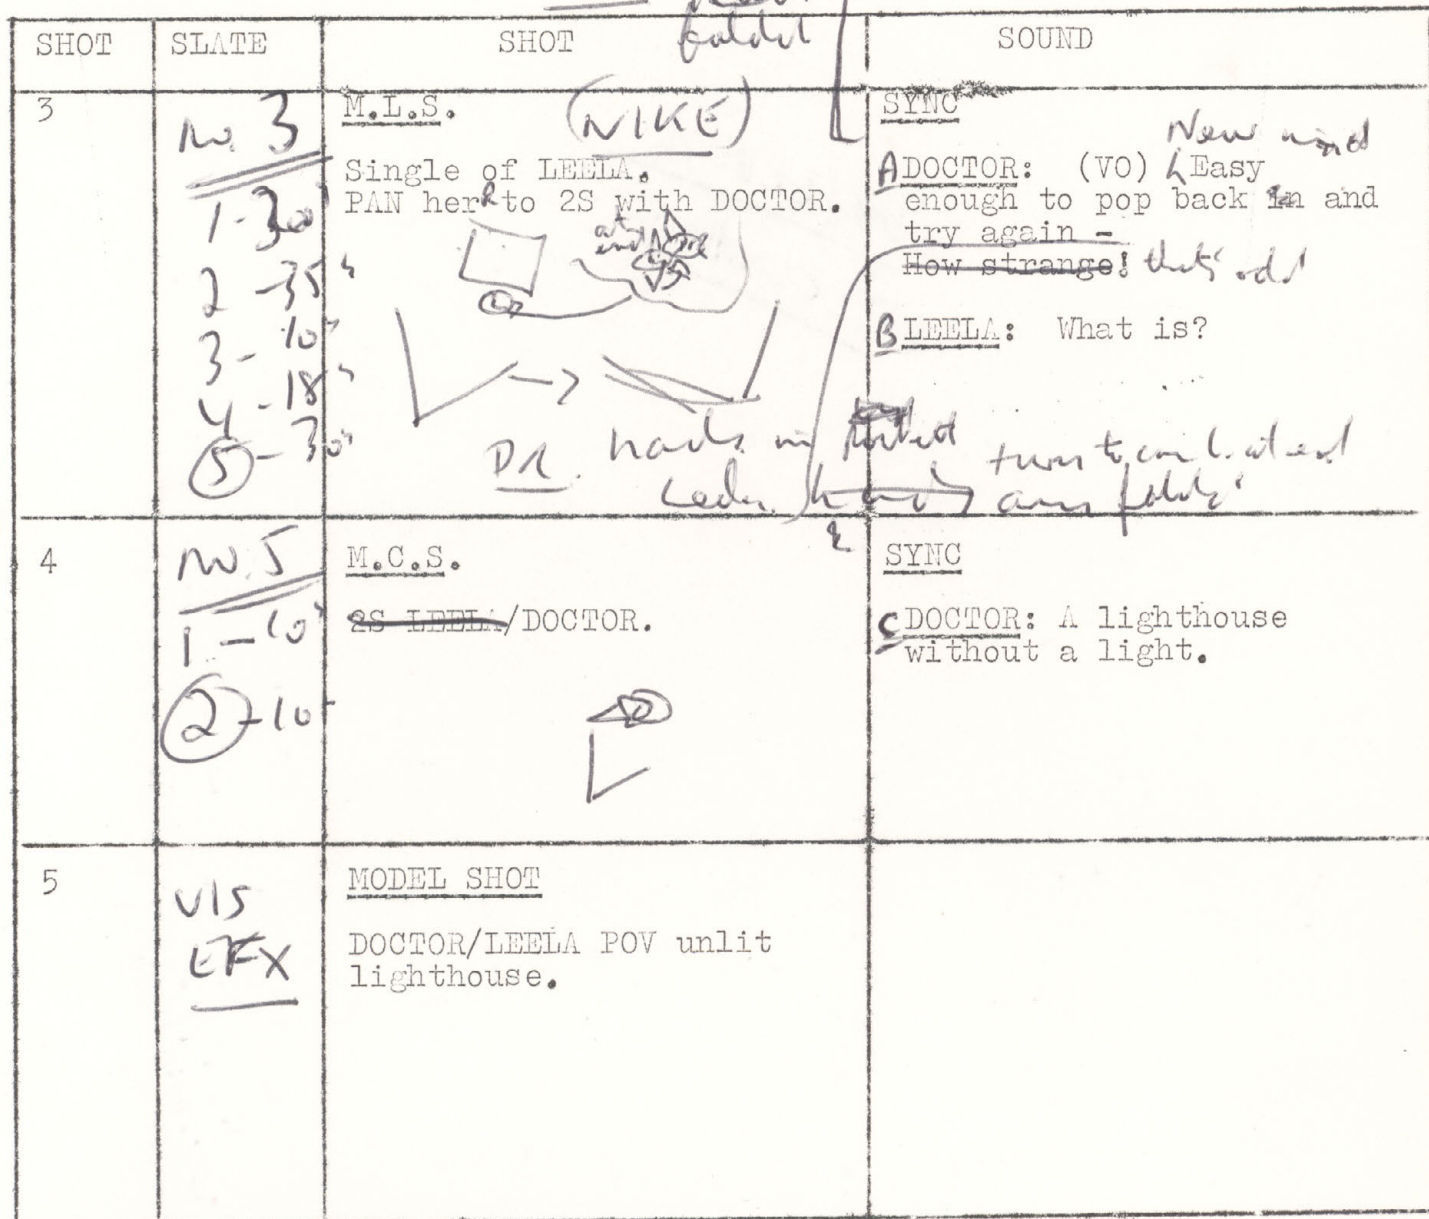 SHOT SLATE SHOT SOUND
3
No. 3
1 - 30"
2 - 35"
3 - 10"
4 - 18"
5 - 30"
M.L.S. (NIKE)
Single of LEELA.
PAN her R to 2S with DOCTOR.
at end
DR. hands in
SYNC
New mind
A DOCTOR: (VO) Easy
enough to pop back in and
try again -
How strange! that's odd
B LEELA: What is?
turn to cam L at end
arms folded
4
No. 5
1 - 10"
2 - 10"
M.C.S.
2S LEELA/DOCTOR.
&
SYNC
C DOCTOR: A lighthouse
without a light.
5
VIS
EFX
MODEL SHOT
DOCTOR/LEELA POV unlit
lighthouse.